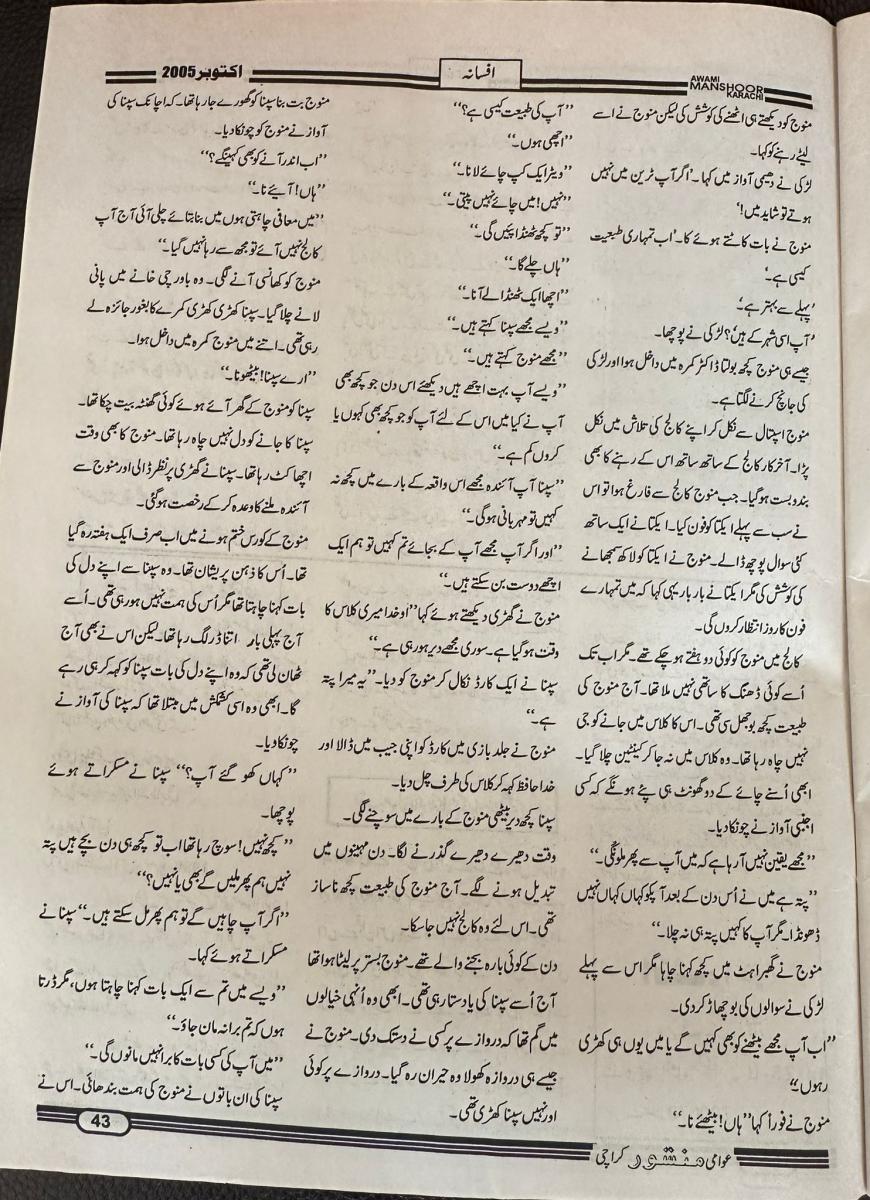 اکتوبر 2005
افسانہ
AWAMI
MANSHOOR
KARACHI
منوج کو دیکھتے ہی اٹھنے کی کوشش کی لیکن منوج نے اسے
لیٹے رہنے کو کہا۔
لڑکی نے دھیمی آواز میں کہا۔ ’اگر آپ ٹرین میں نہیں
ہوتے تو شاید میں!‘
منوج نے بات کاٹتے ہوئے کا۔ ’اب تمہاری طبیعت
کیسی ہے‘
’پہلے سے بہتر ہے‘
’آپ اسی شہر کے ہیں‘؟ لڑکی نے پوچھا۔
جیسے ہی منوج کچھ بولتا ڈاکٹر کمرہ میں داخل ہوا اور لڑکی
کی جانچ کرنے لگتا ہے۔
منوج اسپتال سے نکل کر اپنے کالج کی تلاش میں نکل
پڑا۔ آخر کار کالج کے ساتھ ساتھ اس کے رہنے کا بھی
بندوبست ہو گیا۔ جب منوج کالج سے فارغ ہوا تو اس
نے سب سے پہلے ایکتا کو فون کیا۔ ایکتا نے ایک ساتھ
کئی سوال پوچھ ڈالے۔ منوج نے ایکتا کو لاکھ سمجھانے
کی کوشش کی مگر ایکتا نے بار بار یہی کہا کہ میں تمہارے
فون کا روز انتظار کروں گی۔
کالج میں منوج کو کوئی دو ہفتے ہو چکے تھے۔ مگر اب تک
اُسے کوئی ڈھنگ کا ساتھی نہیں ملا تھا۔ آج منوج کی
طبیعت کچھ بوجھل سی تھی۔ اس کا کلاس میں جانے کو جی
نہیں چاہ رہا تھا۔ وہ کلاس میں نہ جا کر کینٹین چلا گیا۔
ابھی اُسنے چائے کے دو گھونٹ ہی پئے ہونگے کہ کسی
اجنبی آواز نے چونکا دیا۔
”مجھے یقین نہیں آ رہا ہے کہ میں آپ سے پھر ملونگی۔“
”پتہ ہے میں نے اُس دن کے بعد آپکو کہاں کہاں نہیں
ڈھونڈا۔ مگر آپ کا کہیں پتہ ہی نہ چلا۔“
منوج نے گھبراہٹ میں کچھ کہنا چاہا مگر اس سے پہلے
لڑکی نے سوالوں کی بوچھاڑ کر دی۔
”اب آپ مجھے بیٹھنے کو بھی کہیں گے یا میں یوں ہی کھڑی
رہوں۔“
منوج نے فوراً کہا ”ہاں! بیٹھئے نا۔“
”آپ کی طبیعت کیسی ہے؟“
”اچھی ہوں۔“
”ویٹر ایک کپ چائے لانا۔“
”نہیں! میں چائے نہیں پیتی۔“
”تو کچھ ٹھنڈا پئیں گی۔“
”ہاں چلے گا۔“
”اچھا ایک ٹھنڈا لے آنا۔“
”ویسے مجھے سپنا کہتے ہیں۔“
”مجھے منوج کہتے ہیں۔“
”ویسے آپ بہت اچھے ہیں دیکھئے اس دن جو کچھ بھی
آپ نے کیا میں اس کے لئے آپ کو جو کچھ بھی کہوں یا
کروں کم ہے۔“
”سپنا آپ آئندہ مجھے اس واقعہ کے بارے میں کچھ نہ
کہیں تو مہربانی ہوگی۔“
”اور اگر آپ مجھے آپ کے بجائے تم کہیں تو ہم ایک
اچھے دوست بن سکتے ہیں۔“
منوج نے گھڑی دیکھتے ہوئے کہا ”او خدا میری کلاس کا
وقت ہو گیا ہے۔ سوری مجھے دیر ہو رہی ہے۔“
سپنا نے ایک کارڈ نکال کر منوج کو دیا۔ ”یہ میرا پتہ
ہے۔“
منوج نے جلد بازی میں کارڈ کو اپنی جیب میں ڈالا اور
خدا حافظ کہہ کر کلاس کی طرف چل دیا۔
سپنا کچھ دیر بیٹھی منوج کے بارے میں سوچنے لگی۔
وقت دھیرے دھیرے گذرنے لگا۔ دن مہینوں میں
تبدیل ہونے لگے۔ آج منوج کی طبیعت کچھ ناساز
تھی۔ اس لئے وہ کالج نہیں جا سکا۔
دن کے کوئی بارہ بجنے والے تھے۔ منوج بستر پر لیٹا ہوا تھا
آج اُسے سپنا کی یاد ستا رہی تھی۔ ابھی وہ اُنہی خیالوں
میں گم تھا کہ دروازے پر کسی نے دستک دی۔ منوج نے
جیسے ہی دروازہ کھولا وہ حیران رہ گیا۔ دروازے پر کوئی
اور نہیں سپنا کھڑی تھی۔
منوج بت بنا سپنا کو گھورے جا رہا تھا۔ کہ اچانک سپنا کی
آواز نے منوج کو چونکا دیا۔
”اب اندر آنے کو بھی کہینگے؟“
”ہاں! آیئے نا۔“
”میں معافی چاہتی ہوں میں بنا بتائے چلی آئی آج آپ
کالج نہیں آئے تو مجھ سے رہا نہیں گیا۔“
منوج کو کھانسی آنے لگی۔ وہ باورچی خانے میں پانی
لانے چلا گیا۔ سپنا کھڑی کھڑی کمرے کا بغور جائزہ لے
رہی تھی۔ اتنے میں منوج کمرہ میں داخل ہوا۔
”ارے سپنا! بیٹھو نا۔“
سپنا کو منوج کے گھر آئے ہوئے کوئی گھنٹہ بیت چکا تھا۔
سپنا کا جانے کو دل نہیں چاہ رہا تھا۔ منوج کا بھی وقت
اچھا کٹ رہا تھا۔ سپنا نے گھڑی پر نظر ڈالی اور منوج سے
آئندہ ملنے کا وعدہ کر کے رخصت ہو گئی۔
منوج کے کورس ختم ہونے میں اب صرف ایک ہفتہ رہ گیا
تھا۔ اُس کا ذہن پریشان تھا۔ وہ سپنا سے اپنے دل کی
بات کہنا چاہتا تھا مگر اُس کی ہمت نہیں ہو رہی تھی۔ اُسے
آج پہلی بار اتنا ڈر لگ رہا تھا۔ لیکن اس نے بھی آج
ٹھان لی تھی کہ وہ اپنے دل کی بات سپنا کو کہہ کر ہی رہے
گا۔ ابھی وہ اسی کشمکش میں مبتلا تھا کہ سپنا کی آواز نے
چونکا دیا۔
”کہاں کھو گئے آپ؟“ سپنا نے مسکراتے ہوئے
پوچھا۔
”کچھ نہیں! سوچ رہا تھا اب تو کچھ ہی دن بچے ہیں پتہ
نہیں ہم پھر ملیں گے بھی یا نہیں؟“
”اگر آپ چاہیں گے تو ہم پھر مل سکتے ہیں۔“ سپنا نے
مسکراتے ہوئے کہا۔
”ویسے میں تم سے ایک بات کہنا چاہتا ہوں، مگر ڈرتا
ہوں کہ تم برا نہ مان جاؤ۔“
”میں آپ کی کسی بات کا برا نہیں مانوں گی۔“
سپنا کی ان باتوں نے منوج کی ہمت بندھائی۔ اس نے
43
عوامی منشور کراچی